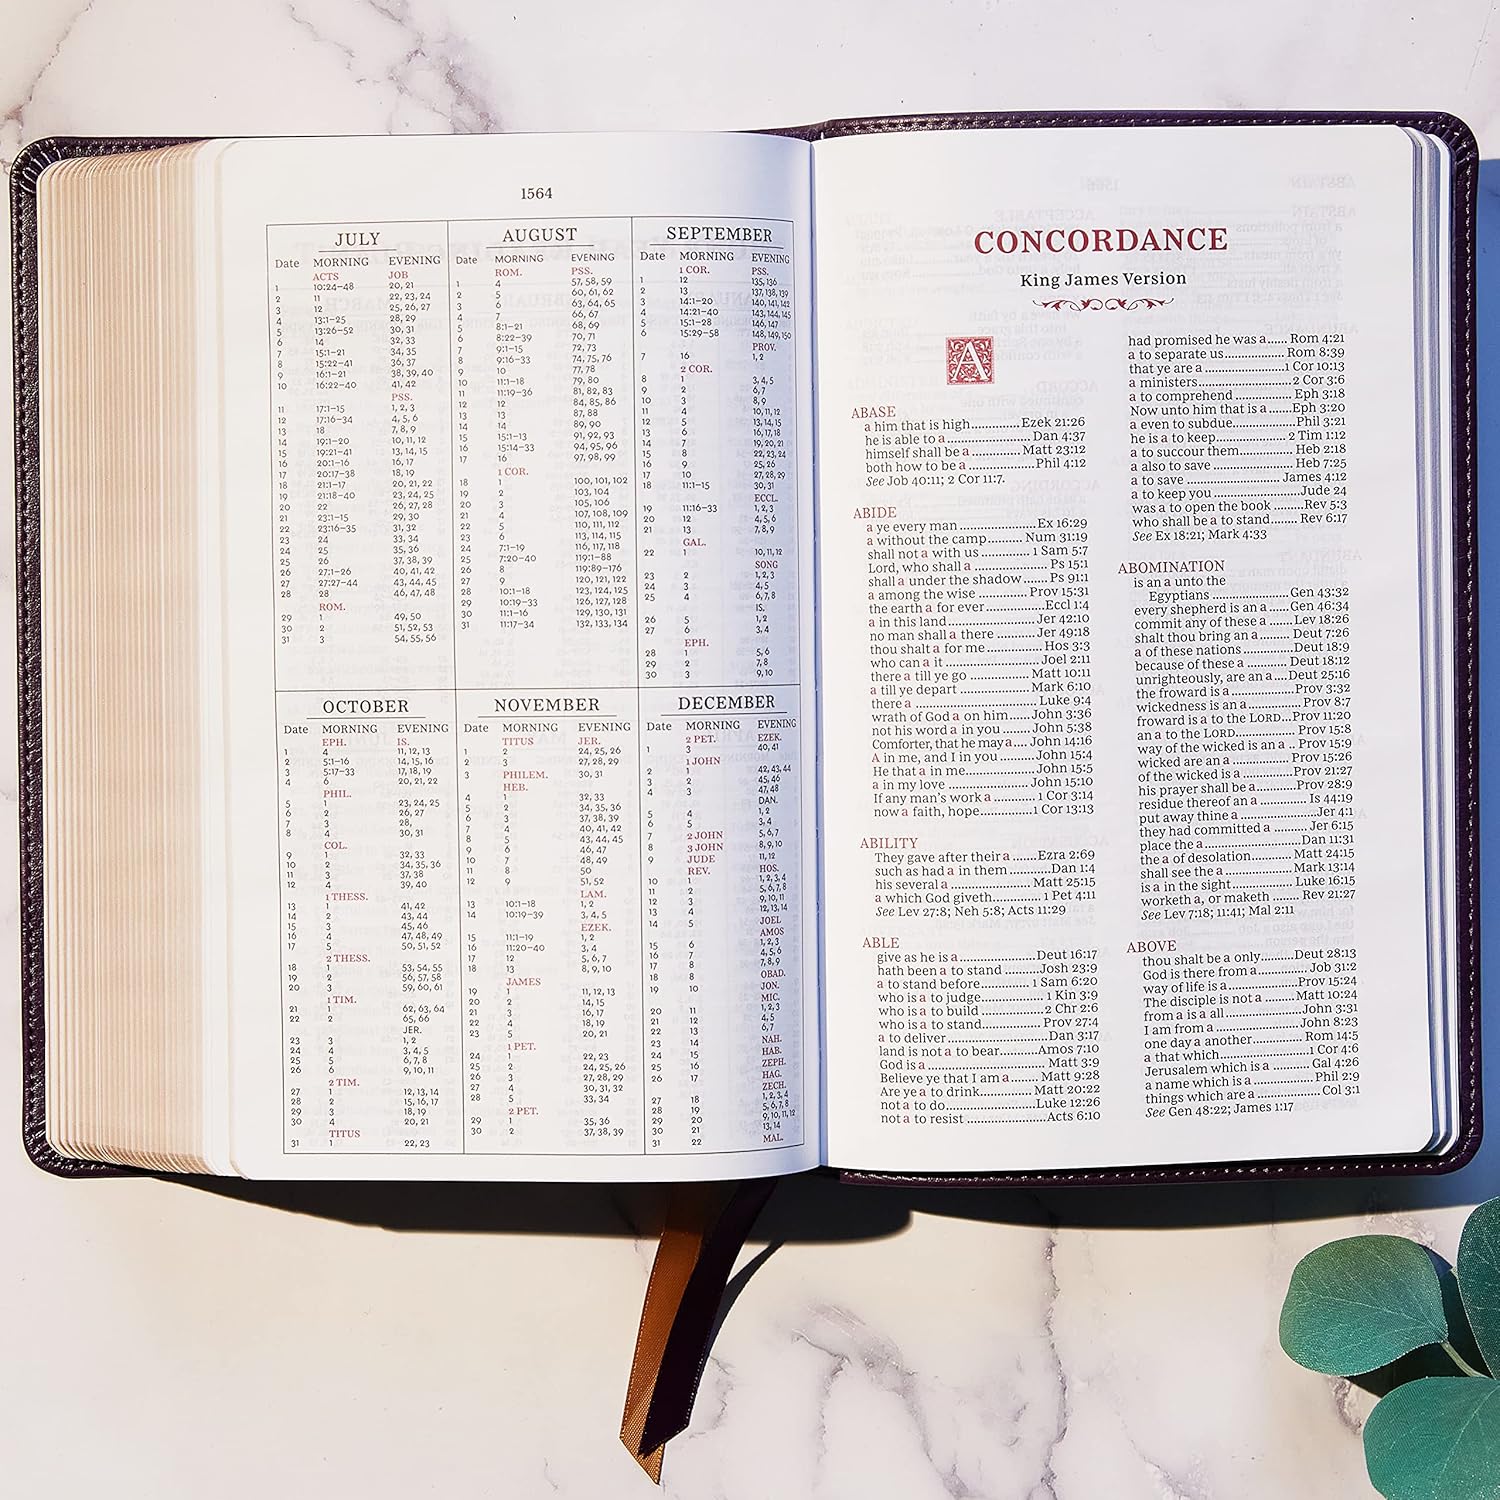 1564
JULY
Date MORNING EVENING
ACTS JOB
1 10:24–48 20, 21
2 11 22, 23, 24
3 12 25, 26, 27
4 13:1–25 28, 29
5 13:26–52 30, 31
6 14 32, 33
7 15:1–21 34, 35
8 15:22–41 36, 37
9 16:1–21 38, 39, 40
10 16:22–40 41, 42
PSS.
11 17:1–15 1, 2, 3
12 17:16–34 4, 5, 6
13 18 7, 8, 9
14 19:1–20 10, 11, 12
15 19:21–41 13, 14, 15
16 20:1–16 16, 17
17 20:17–38 18, 19
18 21:1–17 20, 21, 22
19 21:18–40 23, 24, 25
20 22 26, 27, 28
21 23:1–15 29, 30
22 23:16–35 31, 32
23 24 33, 34
24 25 35, 36
25 26 37, 38, 39
26 27:1–26 40, 41, 42
27 27:27–44 43, 44, 45
28 28 46, 47, 48
ROM.
29 1 49, 50
30 2 51, 52, 53
31 3 54, 55, 56
AUGUST
Date MORNING EVENING
ROM. PSS.
1 4 57, 58, 59
2 5 60, 61, 62
3 6 63, 64, 65
4 7 66, 67
5 8:1–21 68, 69
6 8:22–39 70, 71
7 9:1–15 72, 73
8 9:16–33 74, 75, 76
9 10 77, 78
10 11:1–18 79, 80
11 11:19–36 81, 82, 83
12 12 84, 85, 86
13 13 87, 88
14 14 89, 90
15 15:1–13 91, 92, 93
16 15:14–33 94, 95, 96
17 16 97, 98, 99
1 COR.
18 1 100, 101, 102
19 2 103, 104
20 3 105, 106
21 4 107, 108, 109
22 5 110, 111, 112
23 6 113, 114, 115
24 7:1–19 116, 117, 118
25 7:20–40 119:1–88
26 8 119:89–176
27 9 120, 121, 122
28 10:1–18 123, 124, 125
29 10:19–33 126, 127, 128
30 11:1–16 129, 130, 131
31 11:17–34 132, 133, 134
SEPTEMBER
Date MORNING EVENING
1 COR. PSS.
1 12 135, 136
2 13 137, 138, 139
3 14:1–20 140, 141, 142
4 14:21–40 143, 144, 145
5 15:1–28 146, 147
6 15:29–58 148, 149, 150
PROV.
7 16 1, 2
2 COR.
8 1 3, 4, 5
9 2 6, 7
10 3 8, 9
11 4 10, 11, 12
12 5 13, 14, 15
13 6 16, 17, 18
14 7 19, 20, 21
15 8 22, 23, 24
16 9 25, 26
17 10 27, 28, 29
18 11:1–15 30, 31
ECCL.
19 11:16–33 1, 2, 3
20 12 4, 5, 6
21 13 7, 8, 9
GAL.
22 1 10, 11, 12
SONG
23 2 1, 2, 3
24 3 4, 5
25 4 6, 7, 8
IS.
26 5 1, 2
27 6 3, 4
EPH.
28 1 5, 6
29 2 7, 8
30 3 9, 10
OCTOBER
Date MORNING EVENING
EPH. IS.
1 4 11, 12, 13
2 5:1–16 14, 15, 16
3 5:17–33 17, 18, 19
4 6 20, 21, 22
PHIL.
5 1 23, 24, 25
6 2 26, 27
7 3 28,
8 4 30, 31
COL.
9 1 32, 33
10 2 34, 35, 36
11 3 37, 38
12 4 39, 40
1 THESS.
13 1 41, 42
14 2 43, 44
15 3 45, 46
16 4 47, 48, 49
17 5 50, 51, 52
2 THESS.
18 1 53, 54, 55
19 2 56, 57, 58
20 3 59, 60, 61
1 TIM.
21 1 62, 63, 64
22 2 65, 66
JER.
23 3 1, 2
24 4 3, 4, 5
25 5 6, 7, 8
26 6 9, 10, 11
2 TIM.
27 1 12, 13, 14
28 2 15, 16, 17
29 3 18, 19
30 4 20, 21
TITUS
31 1 22, 23
NOVEMBER
Date MORNING EVENING
TITUS JER.
1 2 24, 25, 26
2 3 27, 28, 29
3 PHILEM. 30, 31
HEB.
4 1 32, 33
5 2 34, 35, 36
6 3 37, 38, 39
7 4 40, 41, 42
8 5 43, 44, 45
9 6 46, 47
10 7 48, 49
11 8 50
12 9 51, 52
LAM.
13 10:1–18 1, 2
14 10:19–39 3, 4, 5
EZEK.
15 11:1–19 1, 2
16 11:20–40 3, 4
17 12 5, 6, 7
18 13 8, 9, 10
JAMES
19 1 11, 12, 13
20 2 14, 15
21 3 16, 17
22 4 18, 19
23 5 20, 21
1 PET.
24 1 22, 23
25 2 24, 25, 26
26 3 27, 28, 29
27 4 30, 31, 32
28 5 33, 34
2 PET.
29 1 35, 36
30 2 37, 38, 39
DECEMBER
Date MORNING EVENING
2 PET. EZEK.
1 3 40, 41
1 JOHN
2 1 42, 43, 44
3 2 45, 46
4 3 47, 48
DAN.
5 4 1, 2
6 5 3, 4
7 2 JOHN 5, 6, 7
8 3 JOHN 8, 9, 10
9 JUDE 11, 12
REV. HOS.
10 1 1, 2, 3, 4
11 2 5, 6, 7, 8
12 3 9, 10, 11
13 4 12, 13, 14
14 5 JOEL
AMOS
15 6 1, 2, 3
16 7 4, 5, 6
17 8 7, 8, 9
18 8 OBAD.
19 10 JON.
MIC.
20 11 1, 2, 3
21 12 4, 5
22 13 6, 7
23 14 NAH.
24 15 HAB.
25 16 ZEPH.
26 17 HAG.
ZECH.
27 18 1, 2, 3, 4
28 19 5, 6, 7, 8
29 20 9, 10, 11, 12
30 21 13, 14
31 22 MAL.
CONCORDANCE
King James Version
A
ABASE
a him that is high............ Ezek 21:26
he is able to a...................... Dan 4:37
himself shall be a............. Matt 23:12
both how to be a ................ Phil 4:12
See Job 40:11; 2 Cor 11:7.
ABIDE
a ye every man .................... Ex 16:29
a without the camp.......... Num 31:19
shall not a with us .............. 1 Sam 5:7
Lord, who shall a .................. Ps 15:1
shall a under the shadow...... Ps 91:1
a among the wise .............. Prov 15:31
the earth a for ever............... Eccl 1:4
a in this land..................... Jer 42:10
no man shall a there .......... Jer 49:18
thou shalt a for me .............. Hos 3:3
who can a it ....................... Joel 2:11
there a till ye go ............... Matt 10:11
a till ye depart ................... Mark 6:10
there a ............................... Luke 9:4
wrath of God a on him..... John 3:36
not his word a in you ....... John 5:38
Comforter, that he may a.... John 14:16
A in me, and I in you ......... John 15:4
He that a in me................. John 15:5
a in my love ..................... John 15:10
If any man's work a .......... 1 Cor 3:14
now a faith, hope.............. 1 Cor 13:13
ABILITY
They gave after their a ...... Ezra 2:69
such as had a in them .......... Dan 1:4
his several a ..................... Matt 25:15
a which God giveth............ 1 Pet 4:11
See Lev 27:8; Neh 5:8; Acts 11:29
ABLE
give as he is a .................... Deut 16:17
hath been a to stand ......... Josh 23:9
a to stand before............... 1 Sam 6:20
who is a to judge................. 1 Kin 3:9
who is a to build ................. 2 Chr 2:6
who is a to stand................ Prov 27:4
a to deliver ......................... Dan 3:17
land is not a to bear.......... Amos 7:10
God is a .............................. Matt 3:9
Believe ye that I am a........ Matt 9:28
Are ye a to drink............... Matt 20:22
not a to do........................ Luke 12:26
not a to resist ................... Acts 6:10
had promised he was a...... Rom 4:21
a to separate us................ Rom 8:39
that ye are a .................... 1 Cor 10:13
a ministers........................ 2 Cor 3:6
a to comprehend .............. Eph 3:18
Now unto him that is a ...... Eph 3:20
a even to subdue............... Phil 3:21
he is a to keep.................. 2 Tim 1:12
a to succour them............. Heb 2:18
a also to save ................... Heb 7:25
a to save .......................... James 4:12
a to keep you ................... Jude 24
was a to open the book ...... Rev 5:3
who shall be a to stand...... Rev 6:17
See Ex 18:21; Mark 4:33
ABOMINATION
is an a unto the
Egyptians ....................... Gen 43:32
every shepherd is an a ...... Gen 46:34
commit any of these a ...... Lev 18:26
shalt thou bring an a........ Deut 7:26
a of these nations ............. Deut 18:9
because of these a ............ Deut 18:12
unrighteously, are an a.... Deut 25:16
the froward is a ................ Prov 3:32
wickedness is an a............ Prov 8:7
froward is a to the LORD... Prov 11:20
an a to the LORD............... Prov 15:8
way of the wicked is an a .. Prov 15:9
wicked are an a ................ Prov 15:26
of the wicked is a .............. Prov 21:27
his prayer shall be a.......... Prov 28:9
residue thereof an a .......... Is 44:19
put away thine a ................ Jer 4:1
they had committed a ........ Jer 6:15
place the a ....................... Dan 11:31
the a of desolation............ Matt 24:15
shall see the a .................. Mark 13:14
is a in the sight................. Luke 16:15
worketh a, or maketh ....... Rev 21:27
See Lev 7:18; 11:41; Mal 2:11
ABOVE
thou shalt be a only.......... Deut 28:13
God is there from a ............ Job 31:2
way of life is a .................. Prov 15:24
The disciple is not a ......... Matt 10:24
from a is a all ................... John 3:31
I am from a ...................... John 8:23
one day a another............. Rom 14:5
a that which..................... 1 Cor 4:6
Jerusalem which is a ......... Gal 4:26
a name which is a ............. Phil 2:9
things which are a ............ Col 3:1
See Gen 48:22; James 1:17